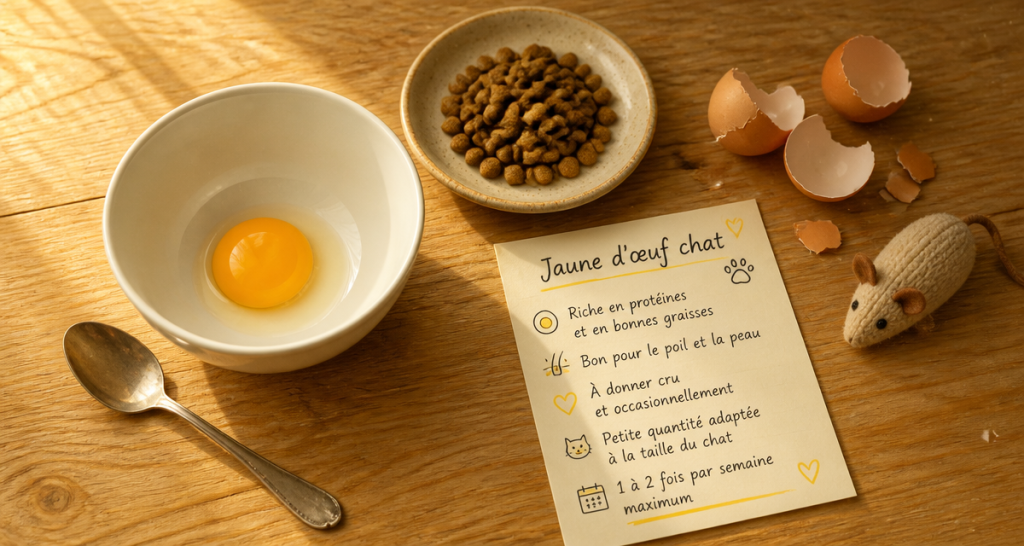 Jaune d'œuf chat
Riche en protéines
et en bonnes graisses
Bon pour le poil et la peau
À donner cru
et occasionnellement
Petite quantité adaptée
à la taille du chat
1 à 2 fois par semaine
maximum